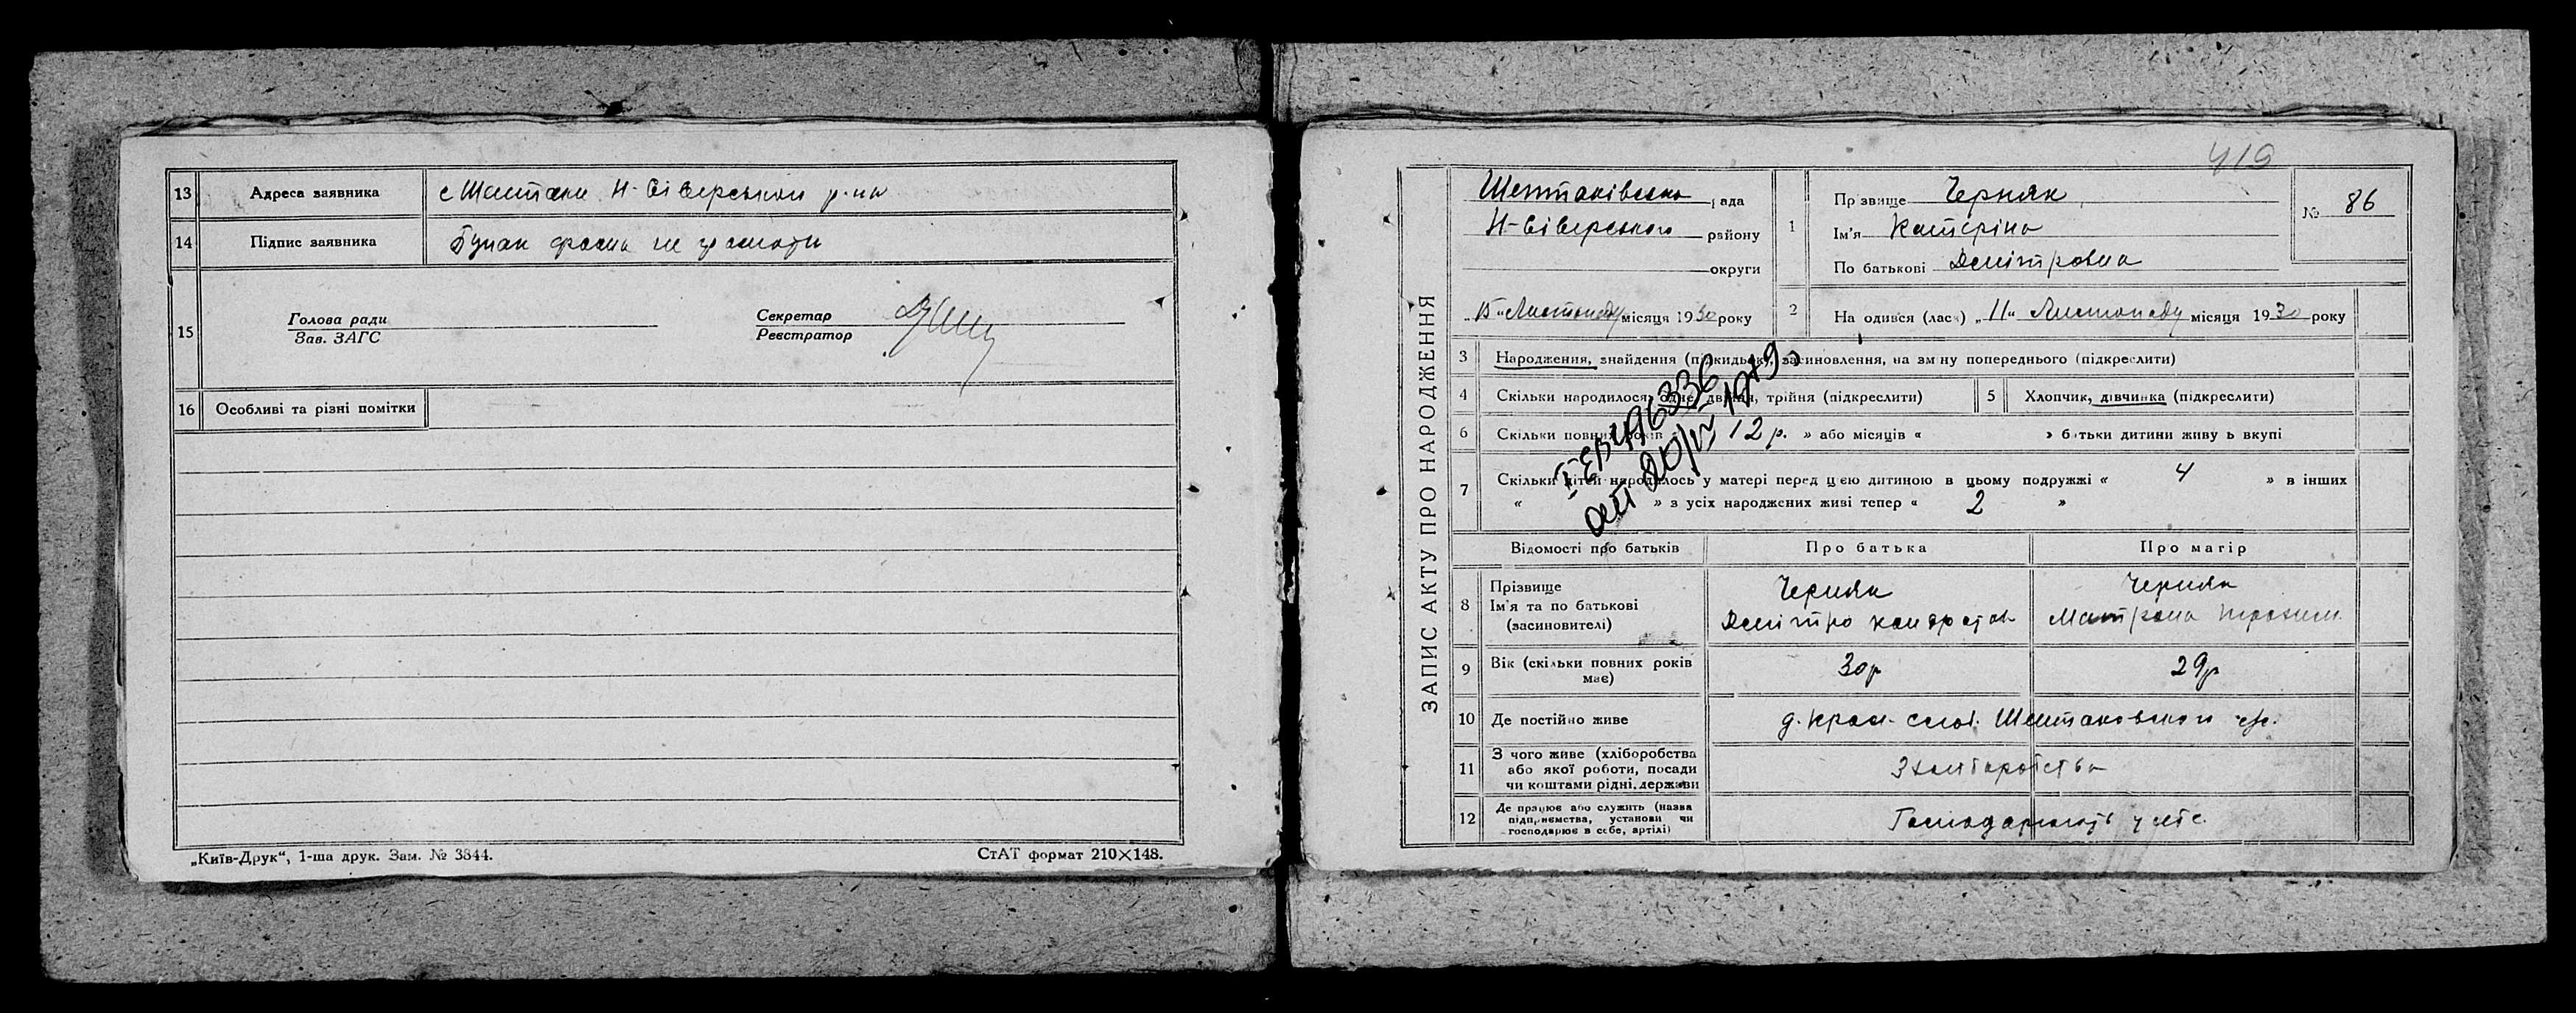 13 Адреса заявника с Шептаки Н-Сіверського р-на
14 Підпис заявника
15 Голова ради
Зав. ЗАГС
Секретар
Реєстратор
16 Особливі та різні помітки
„Київ-Друк“, 1-ша друк. Зам. № 3844.
СтАТ формат 210×148.
419
ЗАПИС АКТУ ПРО НАРОДЖЕННЯ
Шептаківська рада
Н-Сіверського району
округи
„15“ Листопаду місяця 1930 року
1 Прізвище Черняк
Ім'я Катеріна
По батькові Дмітровна
№ 86
2 Народився (лася) „11“ Листопаду місяця 1930 року
3 Народження, знайдення (покидьок), засиновлення, на зміну попереднього (підкреслити)
4 Скільки народилося: одне, двійня, трійня (підкреслити)
5 Хлопчик, дівчинка (підкреслити)
6 Скільки повних років « 12 р. » або місяців « » батьки дитини живуть вкупі
7 Скільки дітей народилось у матері перед цією дитиною в цьому подружжі « 4 » в інших
« » з усіх народжених живі тепер « 2 »
496336
от 20/IV 1979
Відомості про батьків
Про батька
Про матір
8 Прізвище
Ім'я та по батькові
(засиновителі)
Черняк
Дмітро Кондратов
Черняк
Матрона
9 Вік (скільки повних років має)
30р
29р
10 Де постійно живе
Шептаковского
11 З чого живе (хліборобства
або якої роботи, посади
чи коштами рідні, держави
З хліборобства
12 Де працює або служить (назва
підприємства, установи чи
господарює в себе, артілі)
Господарюють у себе